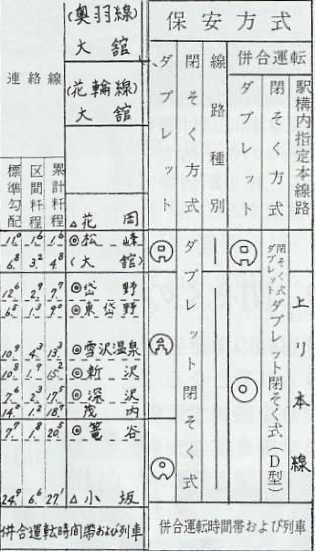 (奥羽線)
大館
(花輪線)
大館
連絡線
標準勾配
区間粁程
累計粁程
△花岡
◎松峰
(大館)
6.8 3.2 4.8
◎岱野
12.6 2.9 7.7
◎東岱野
◎雪沢温泉
10.9 4.3
◎新沢
10.8 1.9 15.2
◎深沢
7.6 2.2 17.5
茂内
14.0 1.2 18.7
◎篭谷
7.7 1.8 20.5
△小坂
24.9 6.6 27.1
併合運転時間帯および列車
保安方式
タブレット
閉そく方式
線路種別
併合運転
タブレット
閉そく方式
駅構内指定本線路
タブレット閉そく式
タブレット
閉そく式
タブレット閉そく式(D型)
上り本線
併合運転時間帯および列車